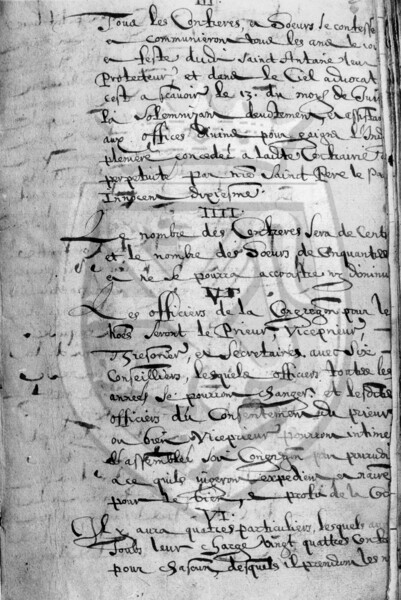 III
Tous les Confreres, et Soeurs se confesse
et communieront tous les ans le jour
et feste dud. Saint Antoine leur
Protecteur, et dans le Ciel advocat
c'est a scavoir le 13. du mois de Juin
La solemnisant devotement et assistan
aux offices divins pour gaigner l'Ind
pleniere concedée a ladite Confrairie
perpetuité par nre Saint Pere le Pa
Innocent dixiesme.
IIII.
Le nombre des Confreres sera de Cent
et le nombre des Soeurs de Cinquante
et ne se pourra accroistre ny diminu
V.
Les officiers de la Congregaon pour les
hoes seront le Prieur, Viceprieur,
Thresorier, et Secretaire, avec Six
Conseilliers, lesquels officiers toutes les
annees se pourront changer, et lesdits
officiers du Consentement du prieur
ou bien Viceprieur pourront intime
d'assembler son Congregaon
a ce quils jugeront expedient, et
pour le bien, et profit de la Co
VI.
Il y aura quattres particuliers, lesquels au
soubs leur charge vingt quattres Conf
pour chascun, desquels il prendront les n